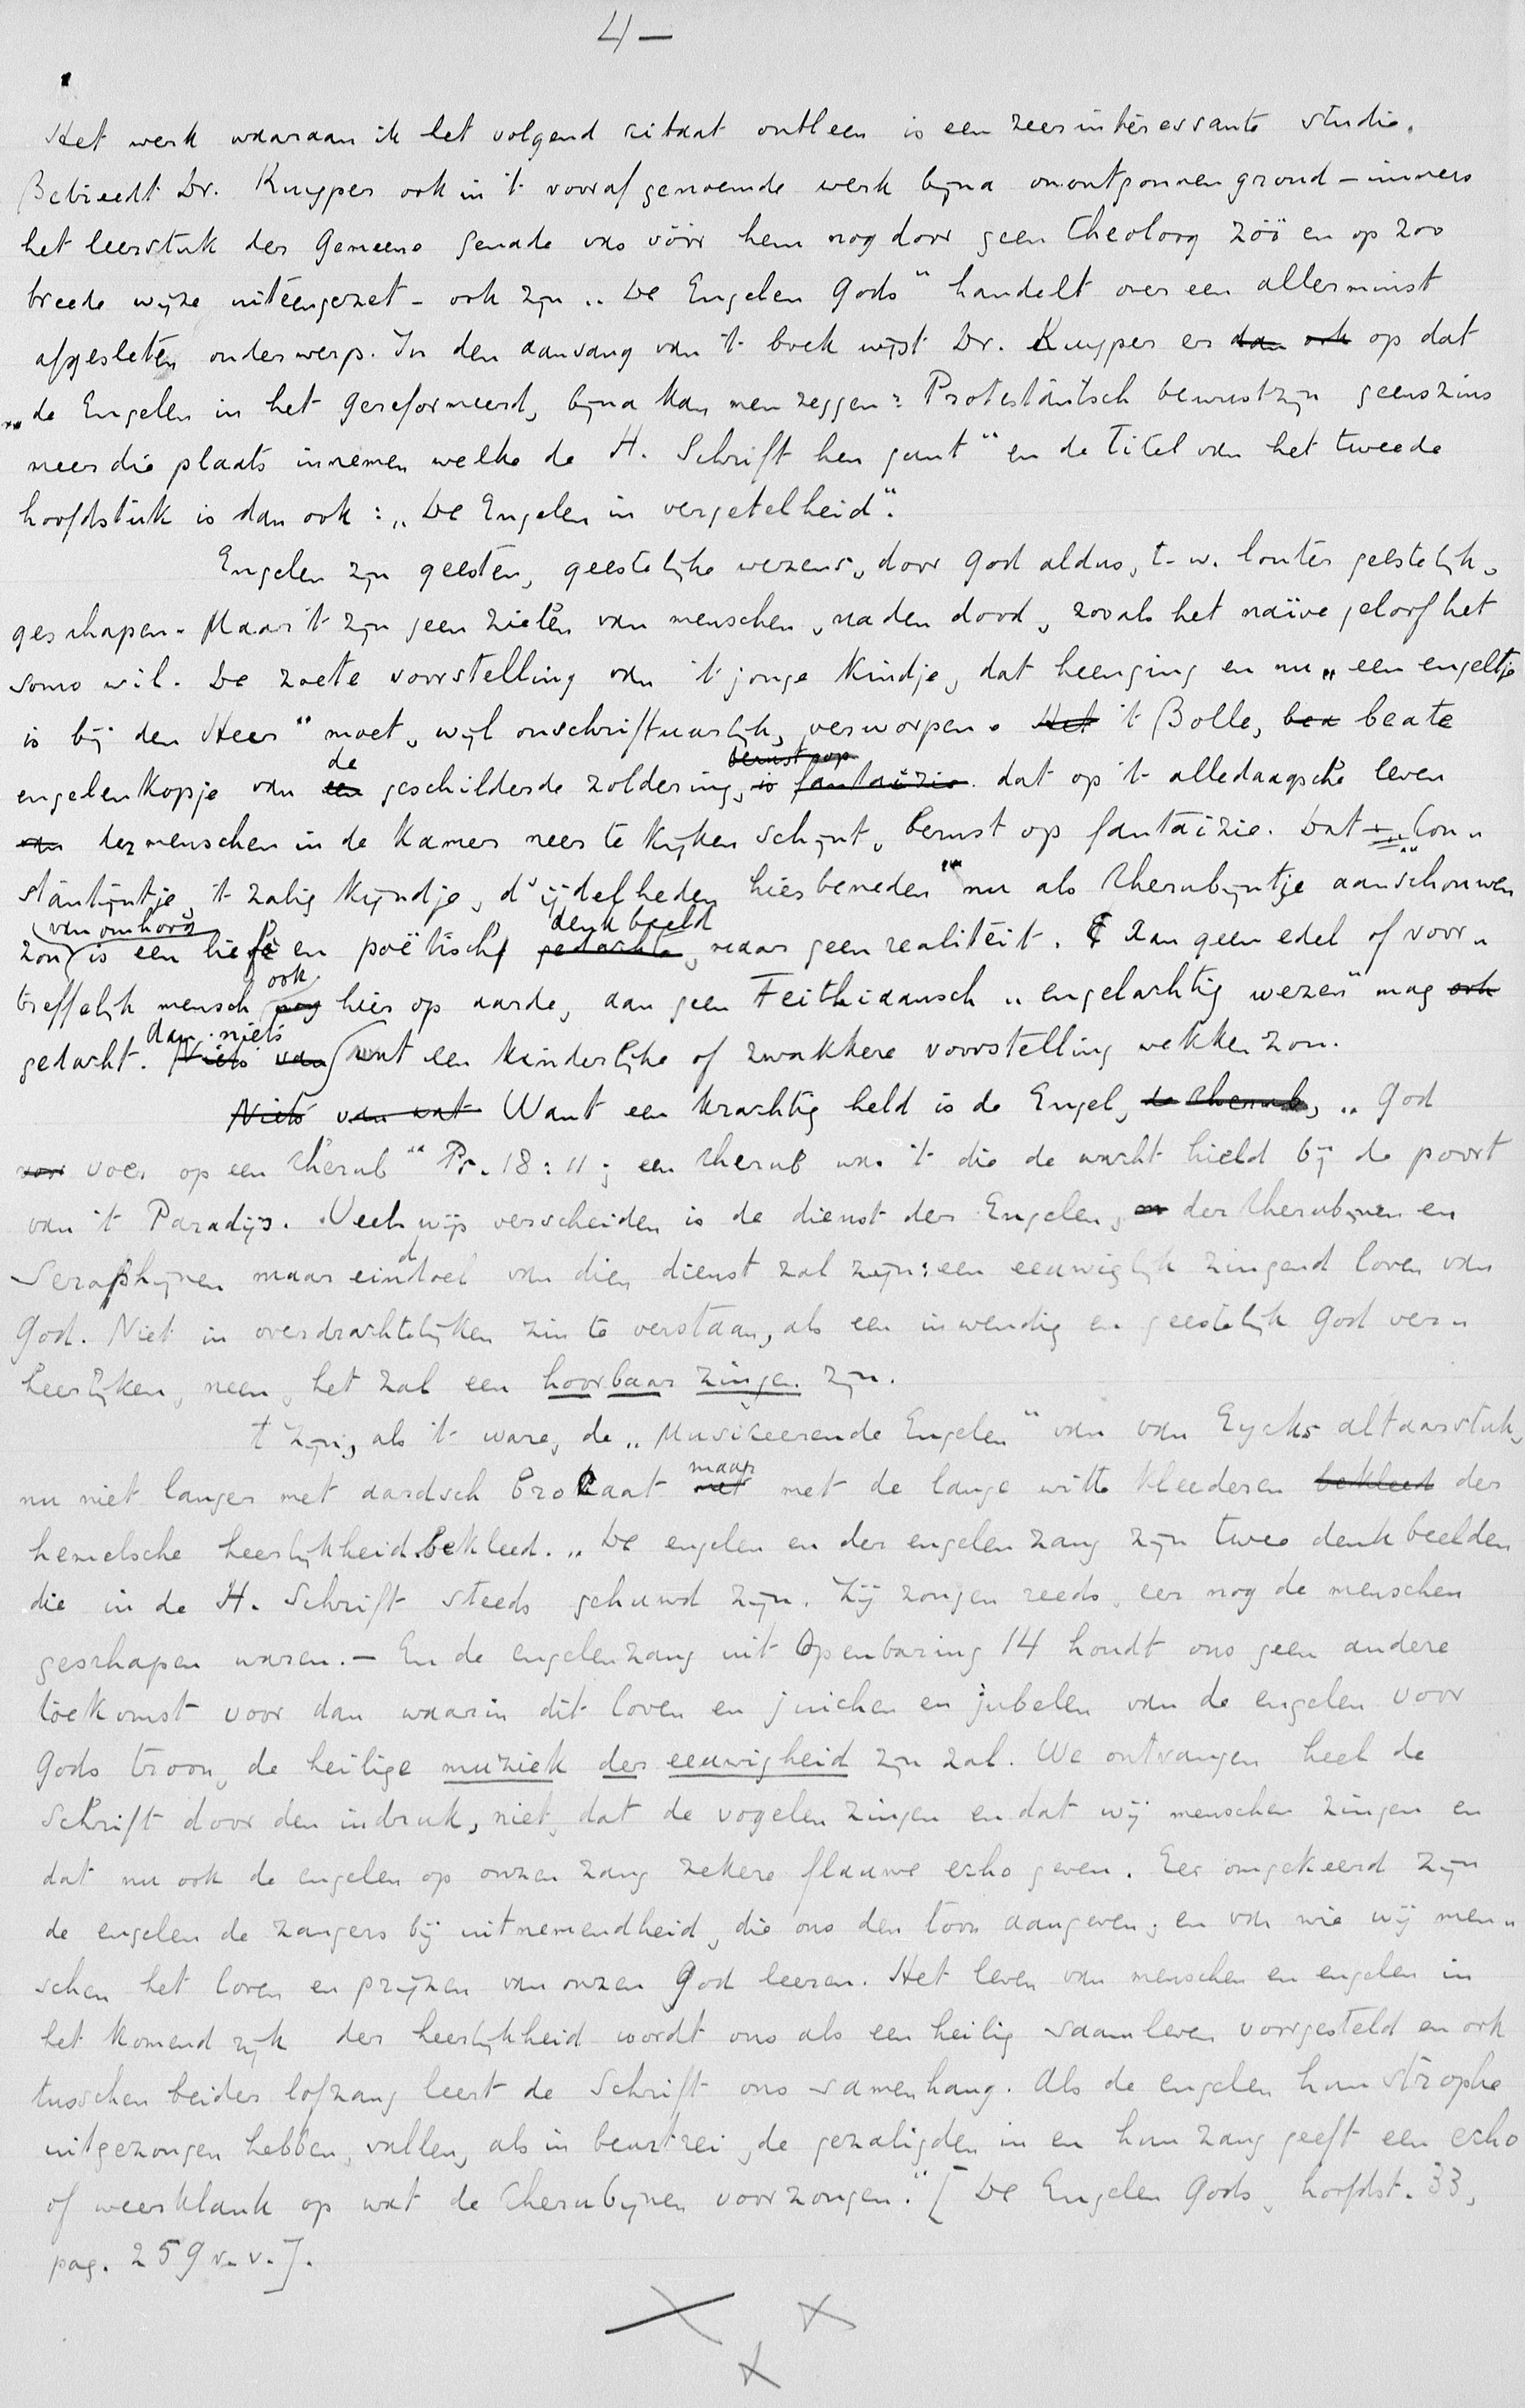 4 —
Het werk waaraan ik het volgend citaat ontleen is een zeer interessante studie.
Betreedt Dr. Kuyper ook in 't vooraf genoemde werk bijna onontgonnen grond – immers
het leerstuk der Gemeene genade was vóór hem nog door geen theoloog zóó en op zoo
breede wijze uitééngezet – ook zijn „De Engelen Gods“ handelt over een allerminst
afgesleten onderwerp. In den aanvang van 't boek wijst Dr. Kuyper er dan ook op dat
„de Engelen in het Gereformeerd, bijna kan men zeggen: Protestantsch bewustzijn geenszins
meer die plaats innemen welke de H. Schrift hen gunt“ en de titel van het tweede
hoofdstuk is dan ook: „De Engelen in vergetelheid“.
Engelen zijn geesten, geestelijke wezens, door God aldus, t.w. louter geestelijk,
geschapen. Maar 't zijn geen zielen van menschen, na den dood, zooals het naïve geloof het
soms wil. De zoete voorstelling van 't jonge kindje, dat heenging en nu „een engeltje
is bij den Heer“ moet, wijl onschriftuurlijk, verworpen. Het 't Bolle, bea beate
de berust op
engelenkopje van een geschilderde zoldering, is fantaizie. dat op 't alledaagsche leven
van der menschen in de kamer neer te kijken schijnt, berust op fantaizie. Dat „Con„
stantijntje, 't zalig kijndje, d' ijdelheden hier beneden“ nu als Cherubijntje aanschouwen
van omhoog denkbeeld
zou is een lief en poëtisch gedachte, maar geen realiteit. Aan geen edel of voor„
ook
treffelijk mensch nog hier op aarde, aan geen Feithiaansch „engelachtig wezen“ mag ook
dan niets
gedacht. Niets van wat een kinderlijke of zwakkere voorstelling wekken zou.
Niets van wat Want een krachtig held is de Engel, de cherub, „God
voer op een cherub“ Ps. 18:11; een cherub was 't die de wacht hield bij de poort
van 't Paradijs. Veelwijs verscheiden is de dienst der Engelen, en der Cherubijnen en
d
Seraphijnen maar eindoel van dien dienst zal zijn: een eeuwiglijk zingend loven van
God. Niet in overdrachtelijken zin te verstaan, als een inwendig en geestelijk God ver„
heerlijken, neen, het zal een hoorbaar zingen zijn.
't Zijn, als 't ware, de „Musiceerende Engelen“ van van Eycks altaarstuk,
maar
nu niet langer met aardsch brokaat met met de lange witte kleederen bekleed der
hemelsche heerlijkheid bekleed. „De engelen en der engelen zang zijn twee denkbeelden
die in de H. Schrift steeds gehuwd zijn. Zij zongen reeds, eer nog de menschen
geschapen waren. – En de engelenzang uit Openbaring 14 houdt ons geen andere
toekomst voor dan waarin dit loven en juichen en jubelen van de engelen voor
Gods troon, de heilige muziek der eeuwigheid zijn zal. We ontvangen heel de
Schrift door den indruk, niet, dat de vogelen zingen en dat wij menschen zingen en
dat nu ook de engelen op onzen zang zekere flauwe echo geven. Eer omgekeerd zijn
de engelen de zangers bij uitnemendheid, die ons den toon aangeven, en van wie wij men„
schen het loven en prijzen van onzen God leeren. Het leven van menschen en engelen in
het komend rijk der heerlijkheid wordt ons als een heilig saamleven voorgesteld en ook
tusschen beider lofzang leert de Schrift ons samenhang. Als de engelen hun strophe
uitgezongen hebben, vallen, als in beurtrei, de gezaligden in en hun zang geeft een echo
of weerklank op wat de Cherubijnen voorzongen.“ [De Engelen Gods, hoofdst. 33,
pag. 259 v.v.].